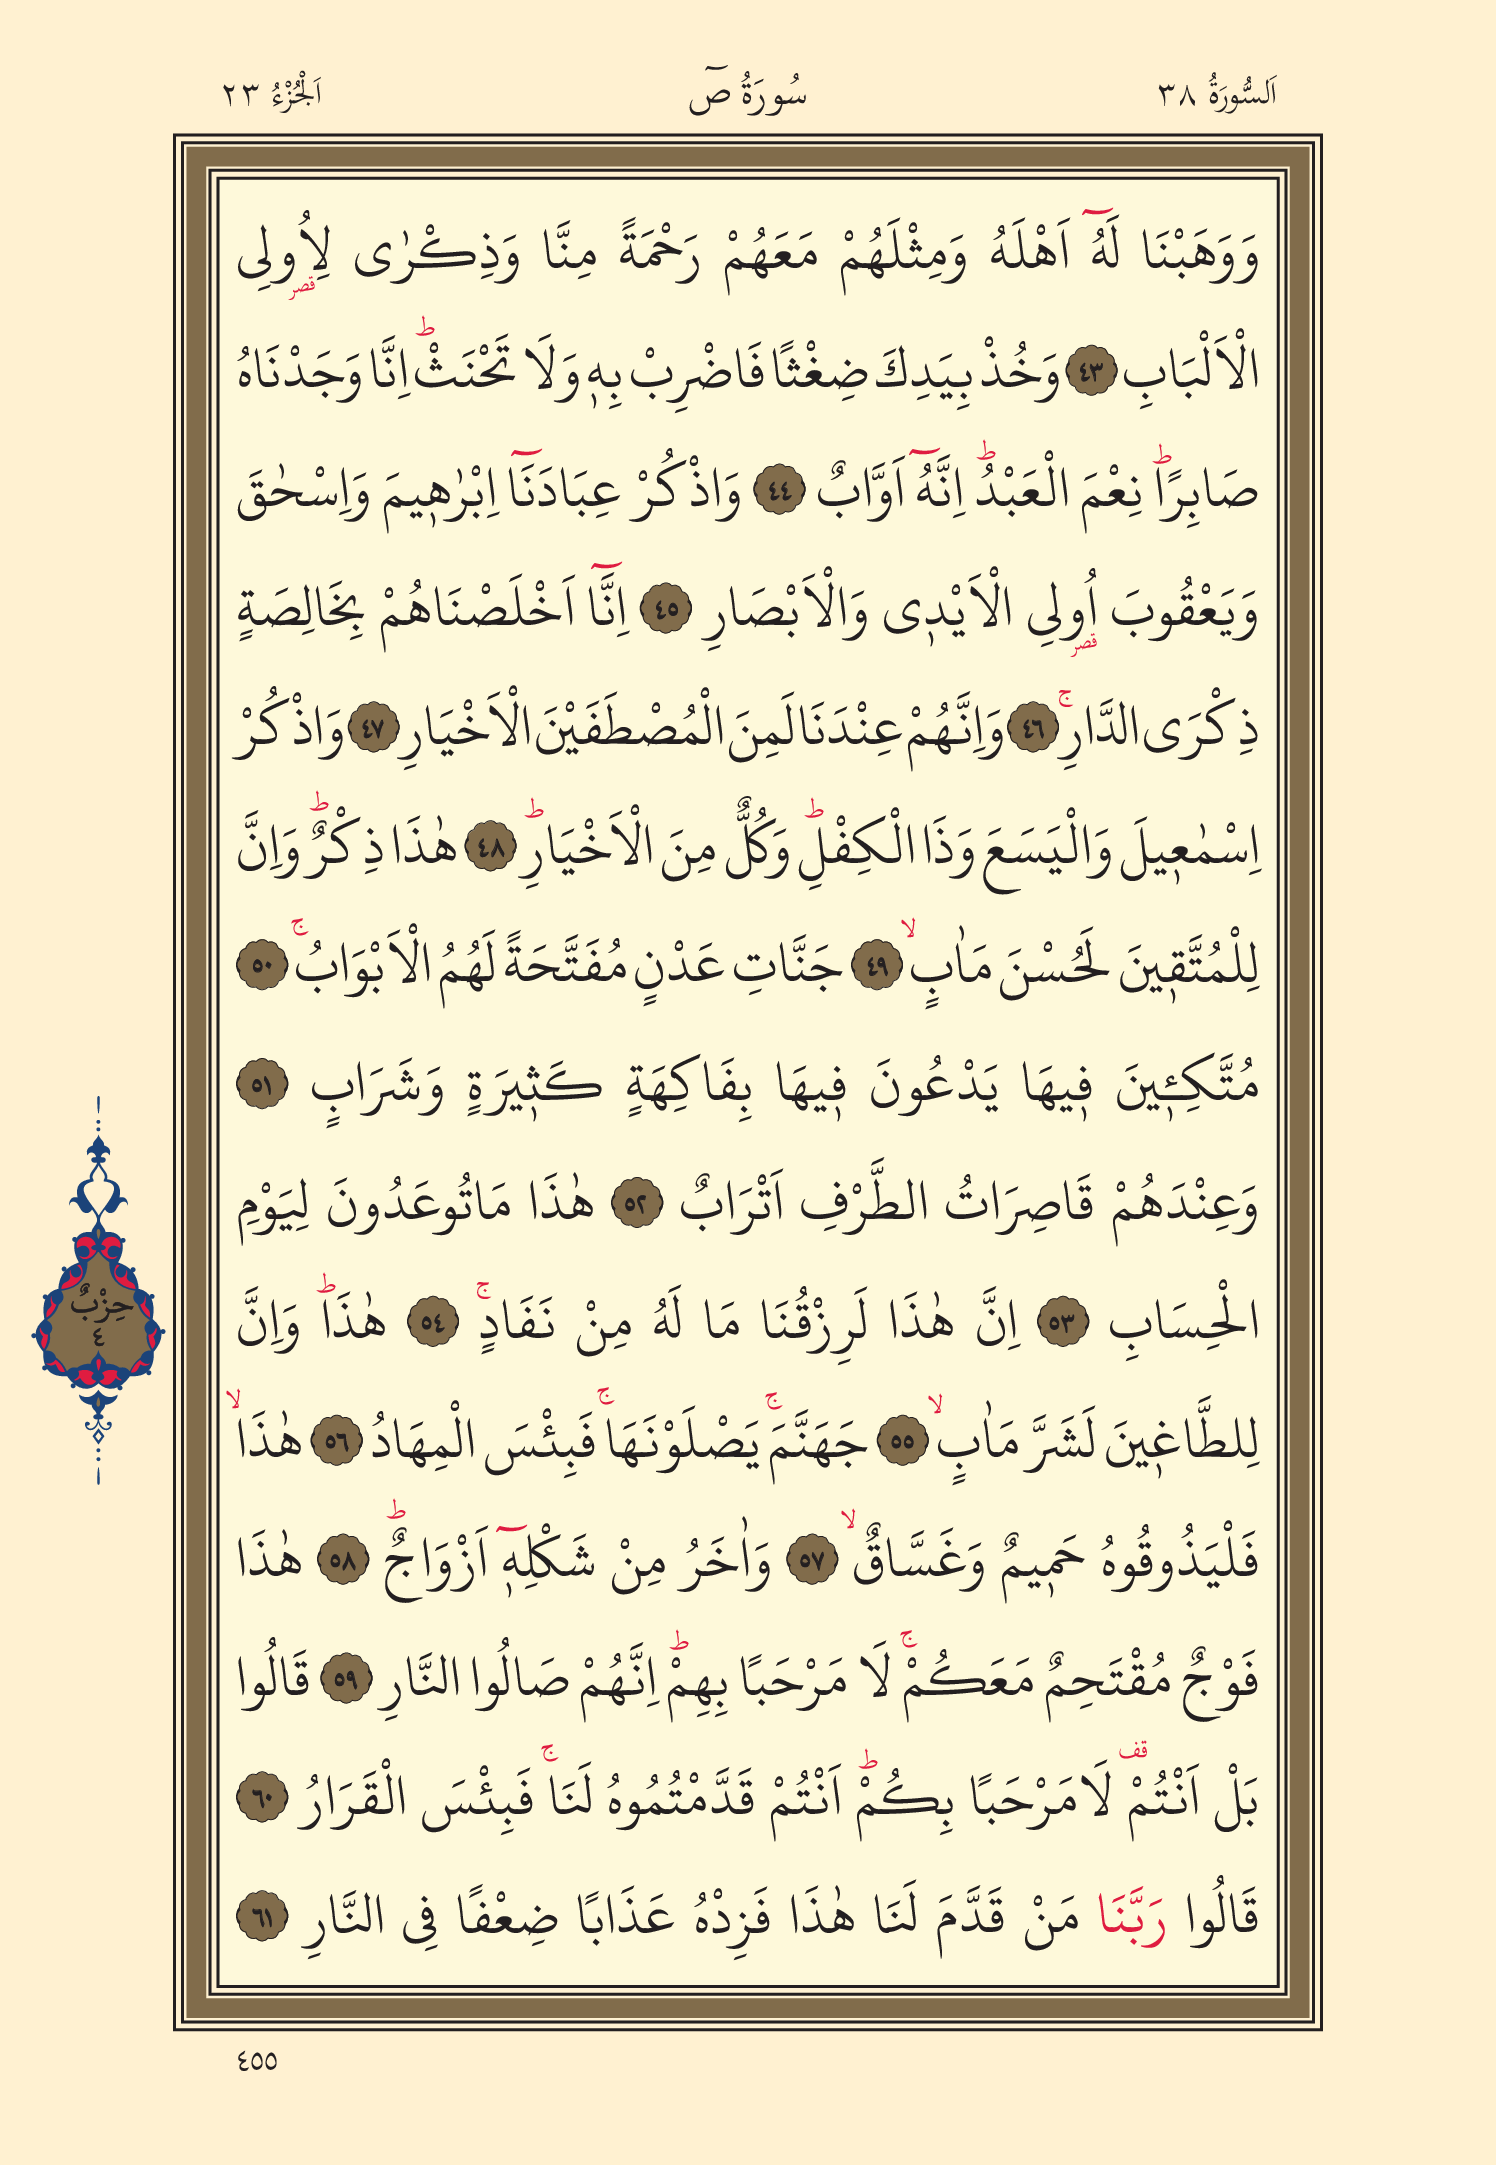 اَلسُّورَةُ ٣٨ سُورَةُ صٓ اَلْجُزْءُ ٢٣
وَوَهَبْنَا لَهُٓ اَهْلَهُ وَمِثْلَهُمْ مَعَهُمْ رَحْمَةً مِنَّا وَذِكْرٰى لِاُولِى
قصر
الْاَلْبَابِ ﴿٤٣﴾ وَخُذْ بِيَدِكَ ضِغْثًا فَاضْرِبْ بِهٖ وَلَا تَحْنَثْ ط اِنَّا وَجَدْنَاهُ
صَابِرًا ط نِعْمَ الْعَبْدُ ط اِنَّهُٓ اَوَّابٌ ﴿٤٤﴾ وَاذْكُرْ عِبَادَنَٓا اِبْرٰهٖيمَ وَاِسْحٰقَ
وَيَعْقُوبَ اُولِى الْاَيْدٖى وَالْاَبْصَارِ ﴿٤٥﴾ اِنَّٓا اَخْلَصْنَاهُمْ بِخَالِصَةٍ
قصر
ذِكْرَى الدَّارِ ج ﴿٤٦﴾ وَاِنَّهُمْ عِنْدَنَا لَمِنَ الْمُصْطَفَيْنَ الْاَخْيَارِ ﴿٤٧﴾ وَاذْكُرْ
اِسْمٰعٖيلَ وَالْيَسَعَ وَذَا الْكِفْلِ ط وَكُلٌّ مِنَ الْاَخْيَارِ ط ﴿٤٨﴾ هٰذَا ذِكْرٌ ط وَاِنَّ
لِلْمُتَّقٖينَ لَحُسْنَ مَاٰبٍ لا ﴿٤٩﴾ جَنَّاتِ عَدْنٍ مُفَتَّحَةً لَهُمُ الْاَبْوَابُ ج ﴿٥٠﴾
مُتَّكِـٖٔينَ فٖيهَا يَدْعُونَ فٖيهَا بِفَاكِهَةٍ كَثٖيرَةٍ وَشَرَابٍ ﴿٥١﴾
وَعِنْدَهُمْ قَاصِرَاتُ الطَّرْفِ اَتْرَابٌ ﴿٥٢﴾ هٰذَا مَاتُوعَدُونَ لِيَوْمِ
الْحِسَابِ ﴿٥٣﴾ اِنَّ هٰذَا لَرِزْقُنَا مَا لَهُ مِنْ نَفَادٍ ج ﴿٥٤﴾ هٰذَا ط وَاِنَّ
لِلطَّاغٖينَ لَشَرَّ مَاٰبٍ لا ﴿٥٥﴾ جَهَنَّمَ ج يَصْلَوْنَهَا ج فَبِئْسَ الْمِهَادُ ﴿٥٦﴾ هٰذَا لا
فَلْيَذُوقُوهُ حَمٖيمٌ وَغَسَّاقٌ لا ﴿٥٧﴾ وَاٰخَرُ مِنْ شَكْلِهٖٓ اَزْوَاجٌ ط ﴿٥٨﴾ هٰذَا
فَوْجٌ مُقْتَحِمٌ مَعَكُمْ ج لَا مَرْحَبًا بِهِمْ ط اِنَّهُمْ صَالُوا النَّارِ ﴿٥٩﴾ قَالُوا
بَلْ اَنْتُمْ قف لَا مَرْحَبًا بِكُمْ ط اَنْتُمْ قَدَّمْتُمُوهُ لَنَا ج فَبِئْسَ الْقَرَارُ ﴿٦٠﴾
قَالُوا رَبَّنَا مَنْ قَدَّمَ لَنَا هٰذَا فَزِدْهُ عَذَابًا ضِعْفًا فِى النَّارِ ﴿٦١﴾
حِزْبٌ
٤
٤٥٥